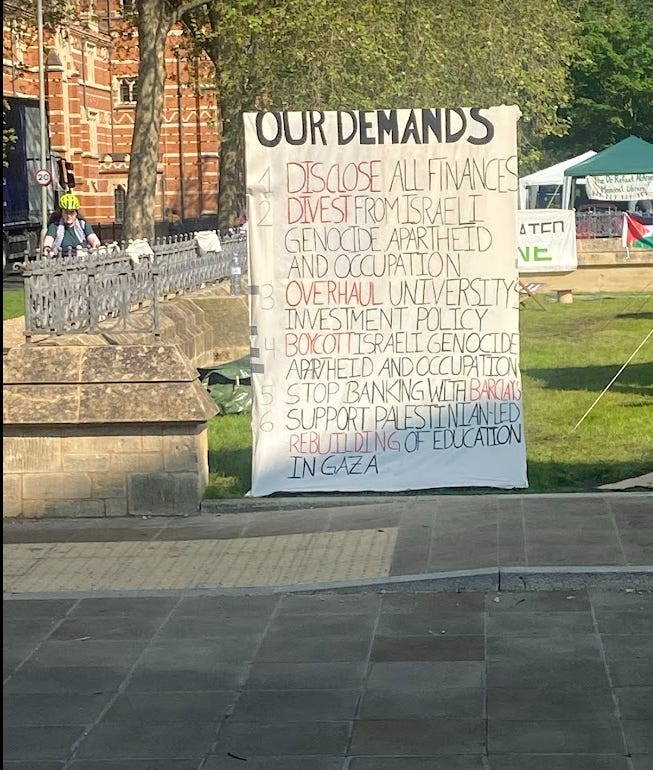 OUR DEMANDS
1 DISCLOSE ALL FINANCES
2 DIVEST FROM ISRAELI
GENOCIDE APARTHEID
AND OCCUPATION
3 OVERHAUL UNIVERSITY
INVESTMENT POLICY
4 BOYCOTT ISRAELI GENOCIDE
APARTHEID AND OCCUPATION
5 STOP BANKING WITH BARCLAYS
6 SUPPORT PALESTINIAN-LED
REBUILDING OF EDUCATION
IN GAZA
20
The Dr Refaat
Memorial Library
ATED
NE